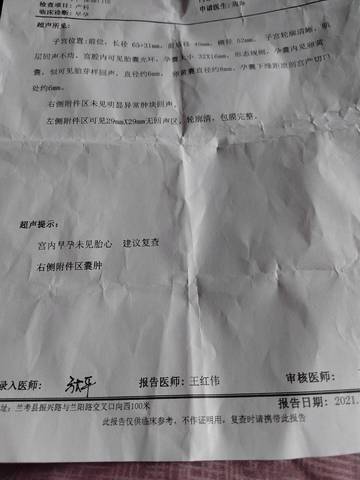 检查项目：产科
申请医生：
临床诊断：早孕
超声所见：
子宫位置:前位，长径 65+31mm，前后径 46mm，横径 52mm， 子宫轮廓清晰，肌
层回声不均，宫腔内可见胎囊光环，孕囊大小 32X16mm，形态规则，孕囊内见卵黄
囊，似可见胎芽样回声，直径约6mm， 卵黄囊直径约6mm，孕囊下缘距原剖宫产切口
处约6mm。
右侧附件区未见明显异常肿块回声。
左侧附件区可见29mmX29mm无回声区，轮廓清，包膜完整。
超声提示：
宫内早孕未见胎心 建议复查
右侧附件区囊肿
录入医师：
报告医师：王红伟
审核医师：
址：兰考县振兴路与兰阳路交叉口向西100米
报告日期：2021.
此报告仅供临床参考，不作证明用，复查时请携带此报告